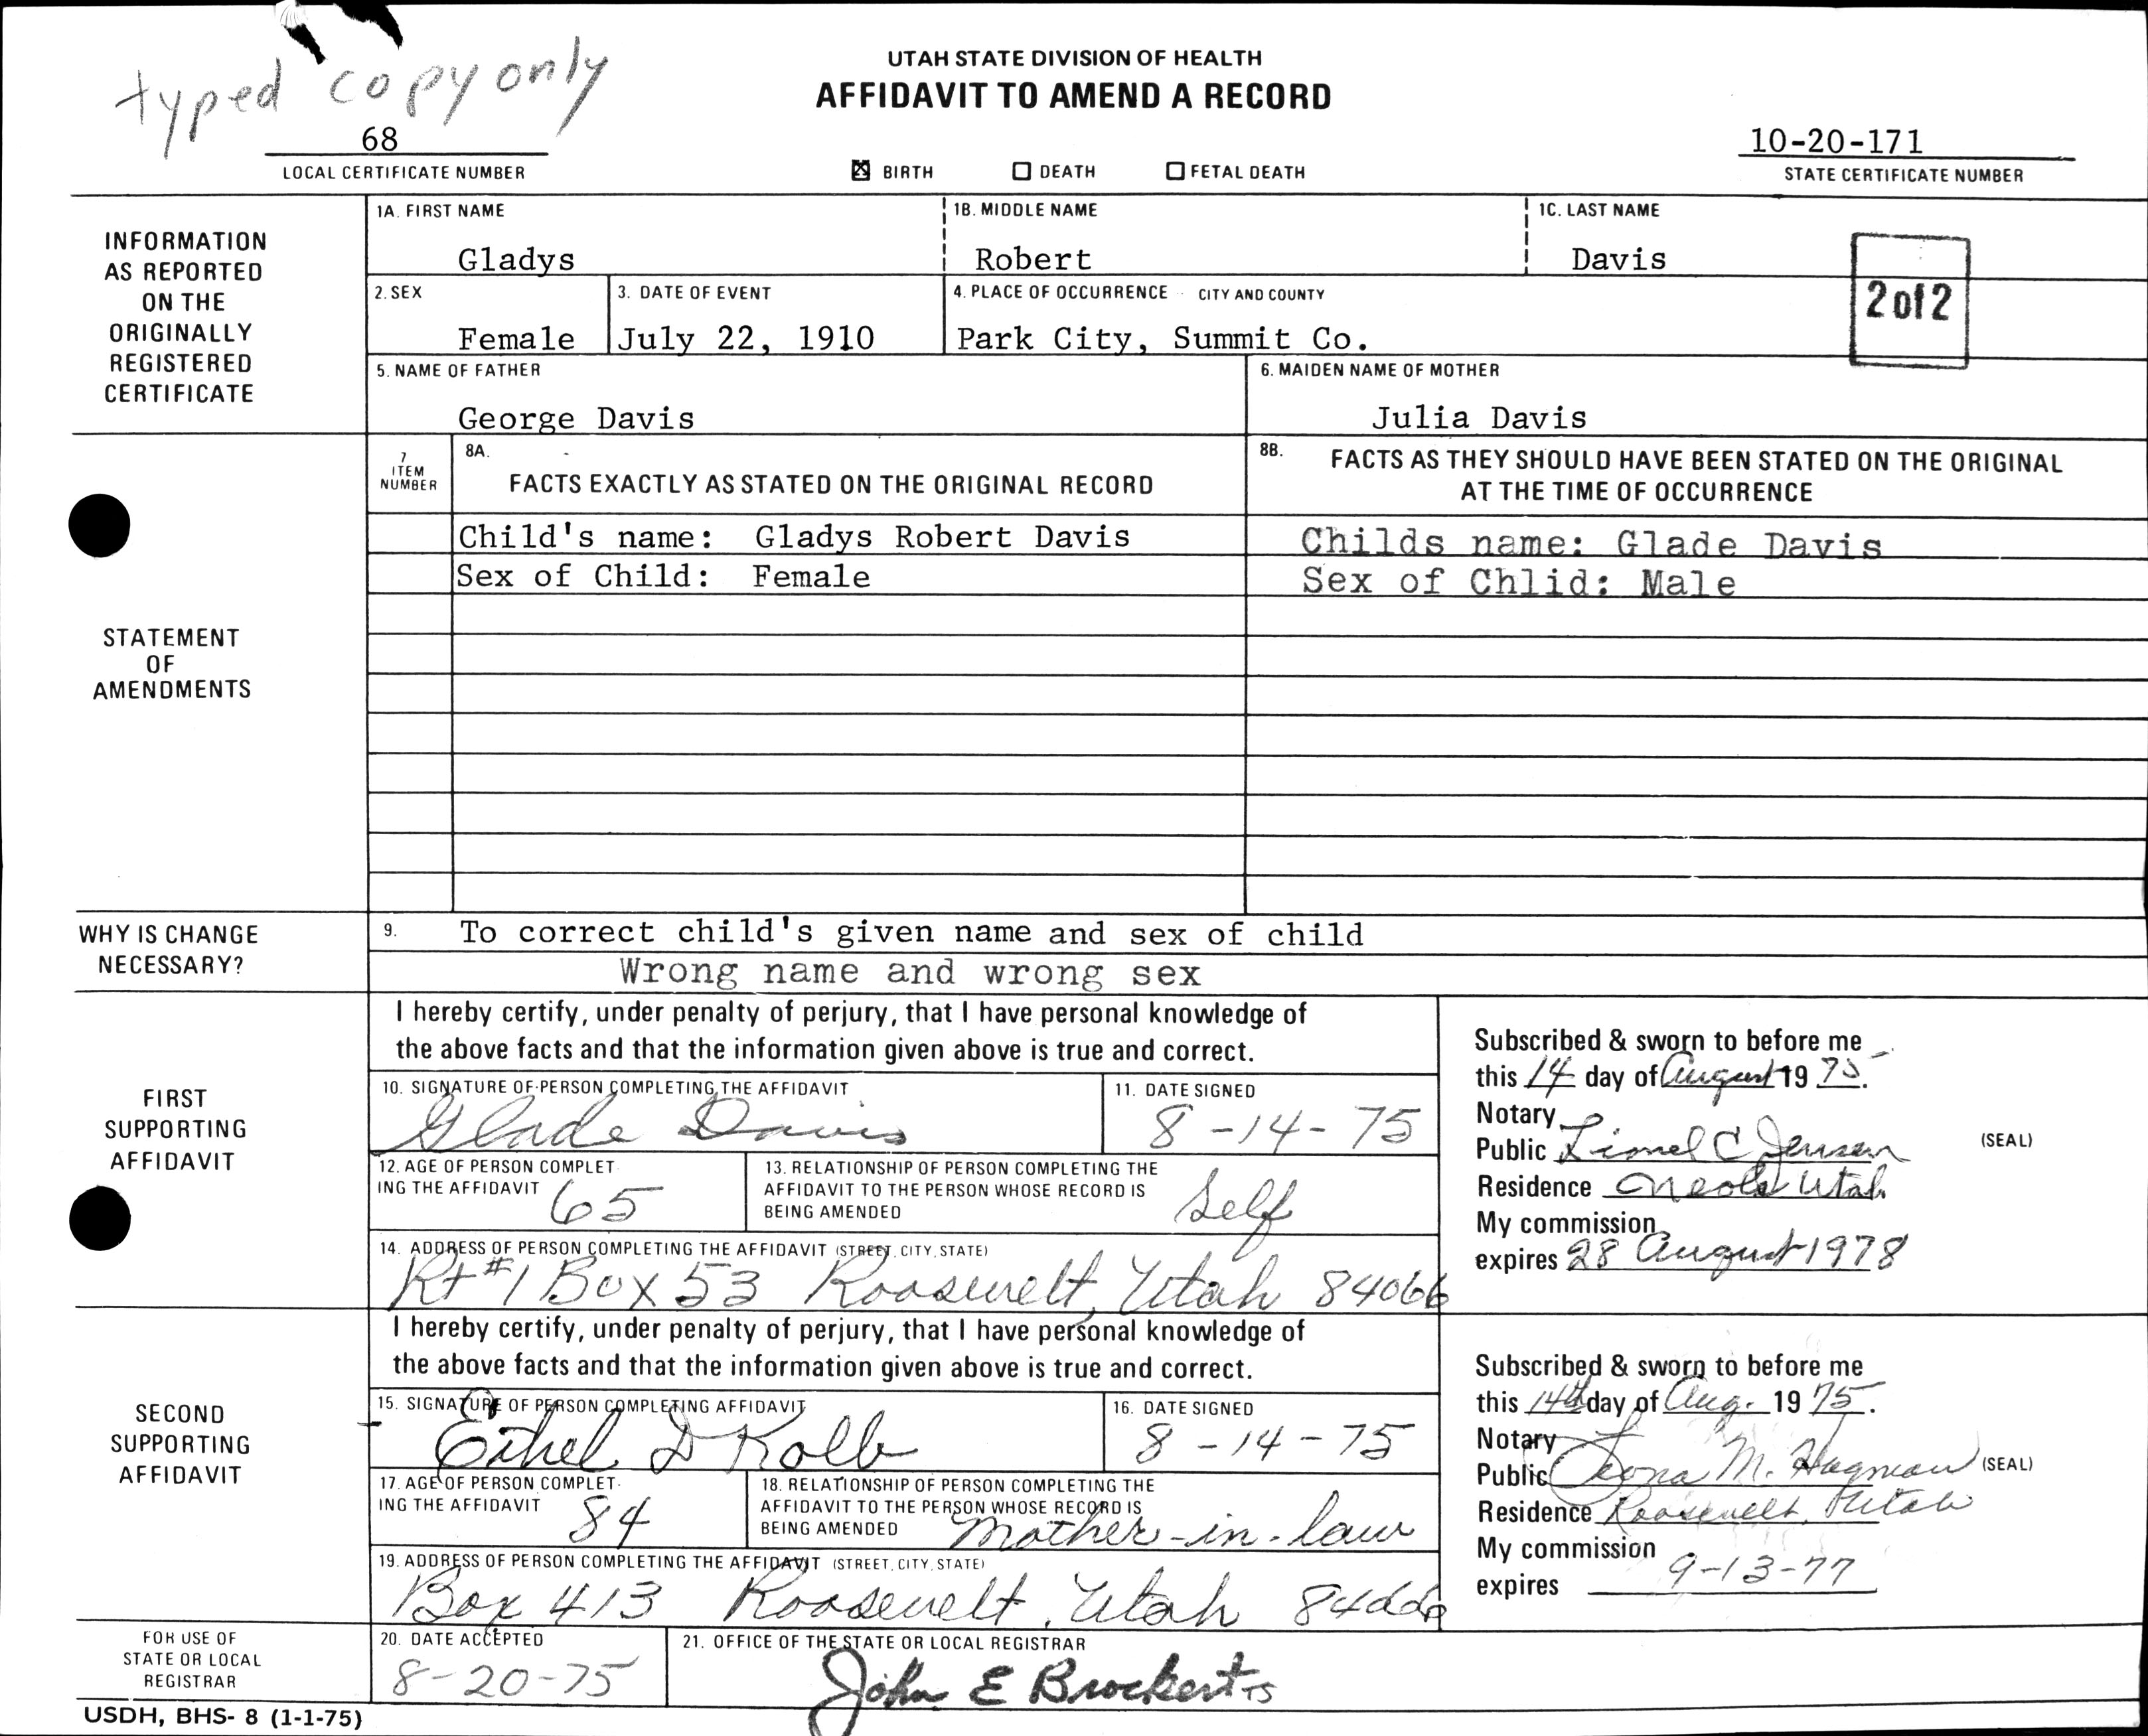 typed copy only
UTAH STATE DIVISION OF HEALTH
AFFIDAVIT TO AMEND A RECORD
68
LOCAL CERTIFICATE NUMBER
☒ BIRTH ☐ DEATH ☐ FETAL DEATH
10-20-171
STATE CERTIFICATE NUMBER
INFORMATION
AS REPORTED
ON THE
ORIGINALLY
REGISTERED
CERTIFICATE
1A. FIRST NAME 1B. MIDDLE NAME 1C. LAST NAME
Gladys Robert Davis
2 of 2
2. SEX 3. DATE OF EVENT 4. PLACE OF OCCURRENCE CITY AND COUNTY
Female July 22, 1910 Park City, Summit Co.
5. NAME OF FATHER 6. MAIDEN NAME OF MOTHER
George Davis Julia Davis
STATEMENT
OF
AMENDMENTS
7
ITEM
NUMBER
8A.
FACTS EXACTLY AS STATED ON THE ORIGINAL RECORD
8B. FACTS AS THEY SHOULD HAVE BEEN STATED ON THE ORIGINAL
AT THE TIME OF OCCURRENCE
Child's name: Gladys Robert Davis Childs name: Glade Davis
Sex of Child: Female Sex of Chlid: Male
WHY IS CHANGE
NECESSARY?
9. To correct child's given name and sex of child
Wrong name and wrong sex
FIRST
SUPPORTING
AFFIDAVIT
I hereby certify, under penalty of perjury, that I have personal knowledge of
the above facts and that the information given above is true and correct.
10. SIGNATURE OF PERSON COMPLETING THE AFFIDAVIT 11. DATE SIGNED
Glade Davis 8-14-75
12. AGE OF PERSON COMPLET-
ING THE AFFIDAVIT 65
13. RELATIONSHIP OF PERSON COMPLETING THE
AFFIDAVIT TO THE PERSON WHOSE RECORD IS
BEING AMENDED Self
14. ADDRESS OF PERSON COMPLETING THE AFFIDAVIT (STREET, CITY, STATE)
Rt #1 Box 53 Roosevelt, Utah 84066
Subscribed & sworn to before me
this 14 day of August 1975.
Notary
Public Lionel C Jensen (SEAL)
Residence Neola Utah
My commission
expires 28 August 1978
SECOND
SUPPORTING
AFFIDAVIT
I hereby certify, under penalty of perjury, that I have personal knowledge of
the above facts and that the information given above is true and correct.
15. SIGNATURE OF PERSON COMPLETING AFFIDAVIT 16. DATE SIGNED
Ethel D Kolb 8-14-75
17. AGE OF PERSON COMPLET-
ING THE AFFIDAVIT 84
18. RELATIONSHIP OF PERSON COMPLETING THE
AFFIDAVIT TO THE PERSON WHOSE RECORD IS
BEING AMENDED Mother-in-law
19. ADDRESS OF PERSON COMPLETING THE AFFIDAVIT (STREET, CITY, STATE)
Box 413 Roosevelt, Utah 84066
Subscribed & sworn to before me
this 14th day of Aug. 1975.
Notary
Public Leona M. Hagman (SEAL)
Residence Roosevelt, Utah
My commission
expires 9-13-77
FOR USE OF
STATE OR LOCAL
REGISTRAR
20. DATE ACCEPTED 21. OFFICE OF THE STATE OR LOCAL REGISTRAR
8-20-75 John E Brockert TS
USDH, BHS- 8 (1-1-75)